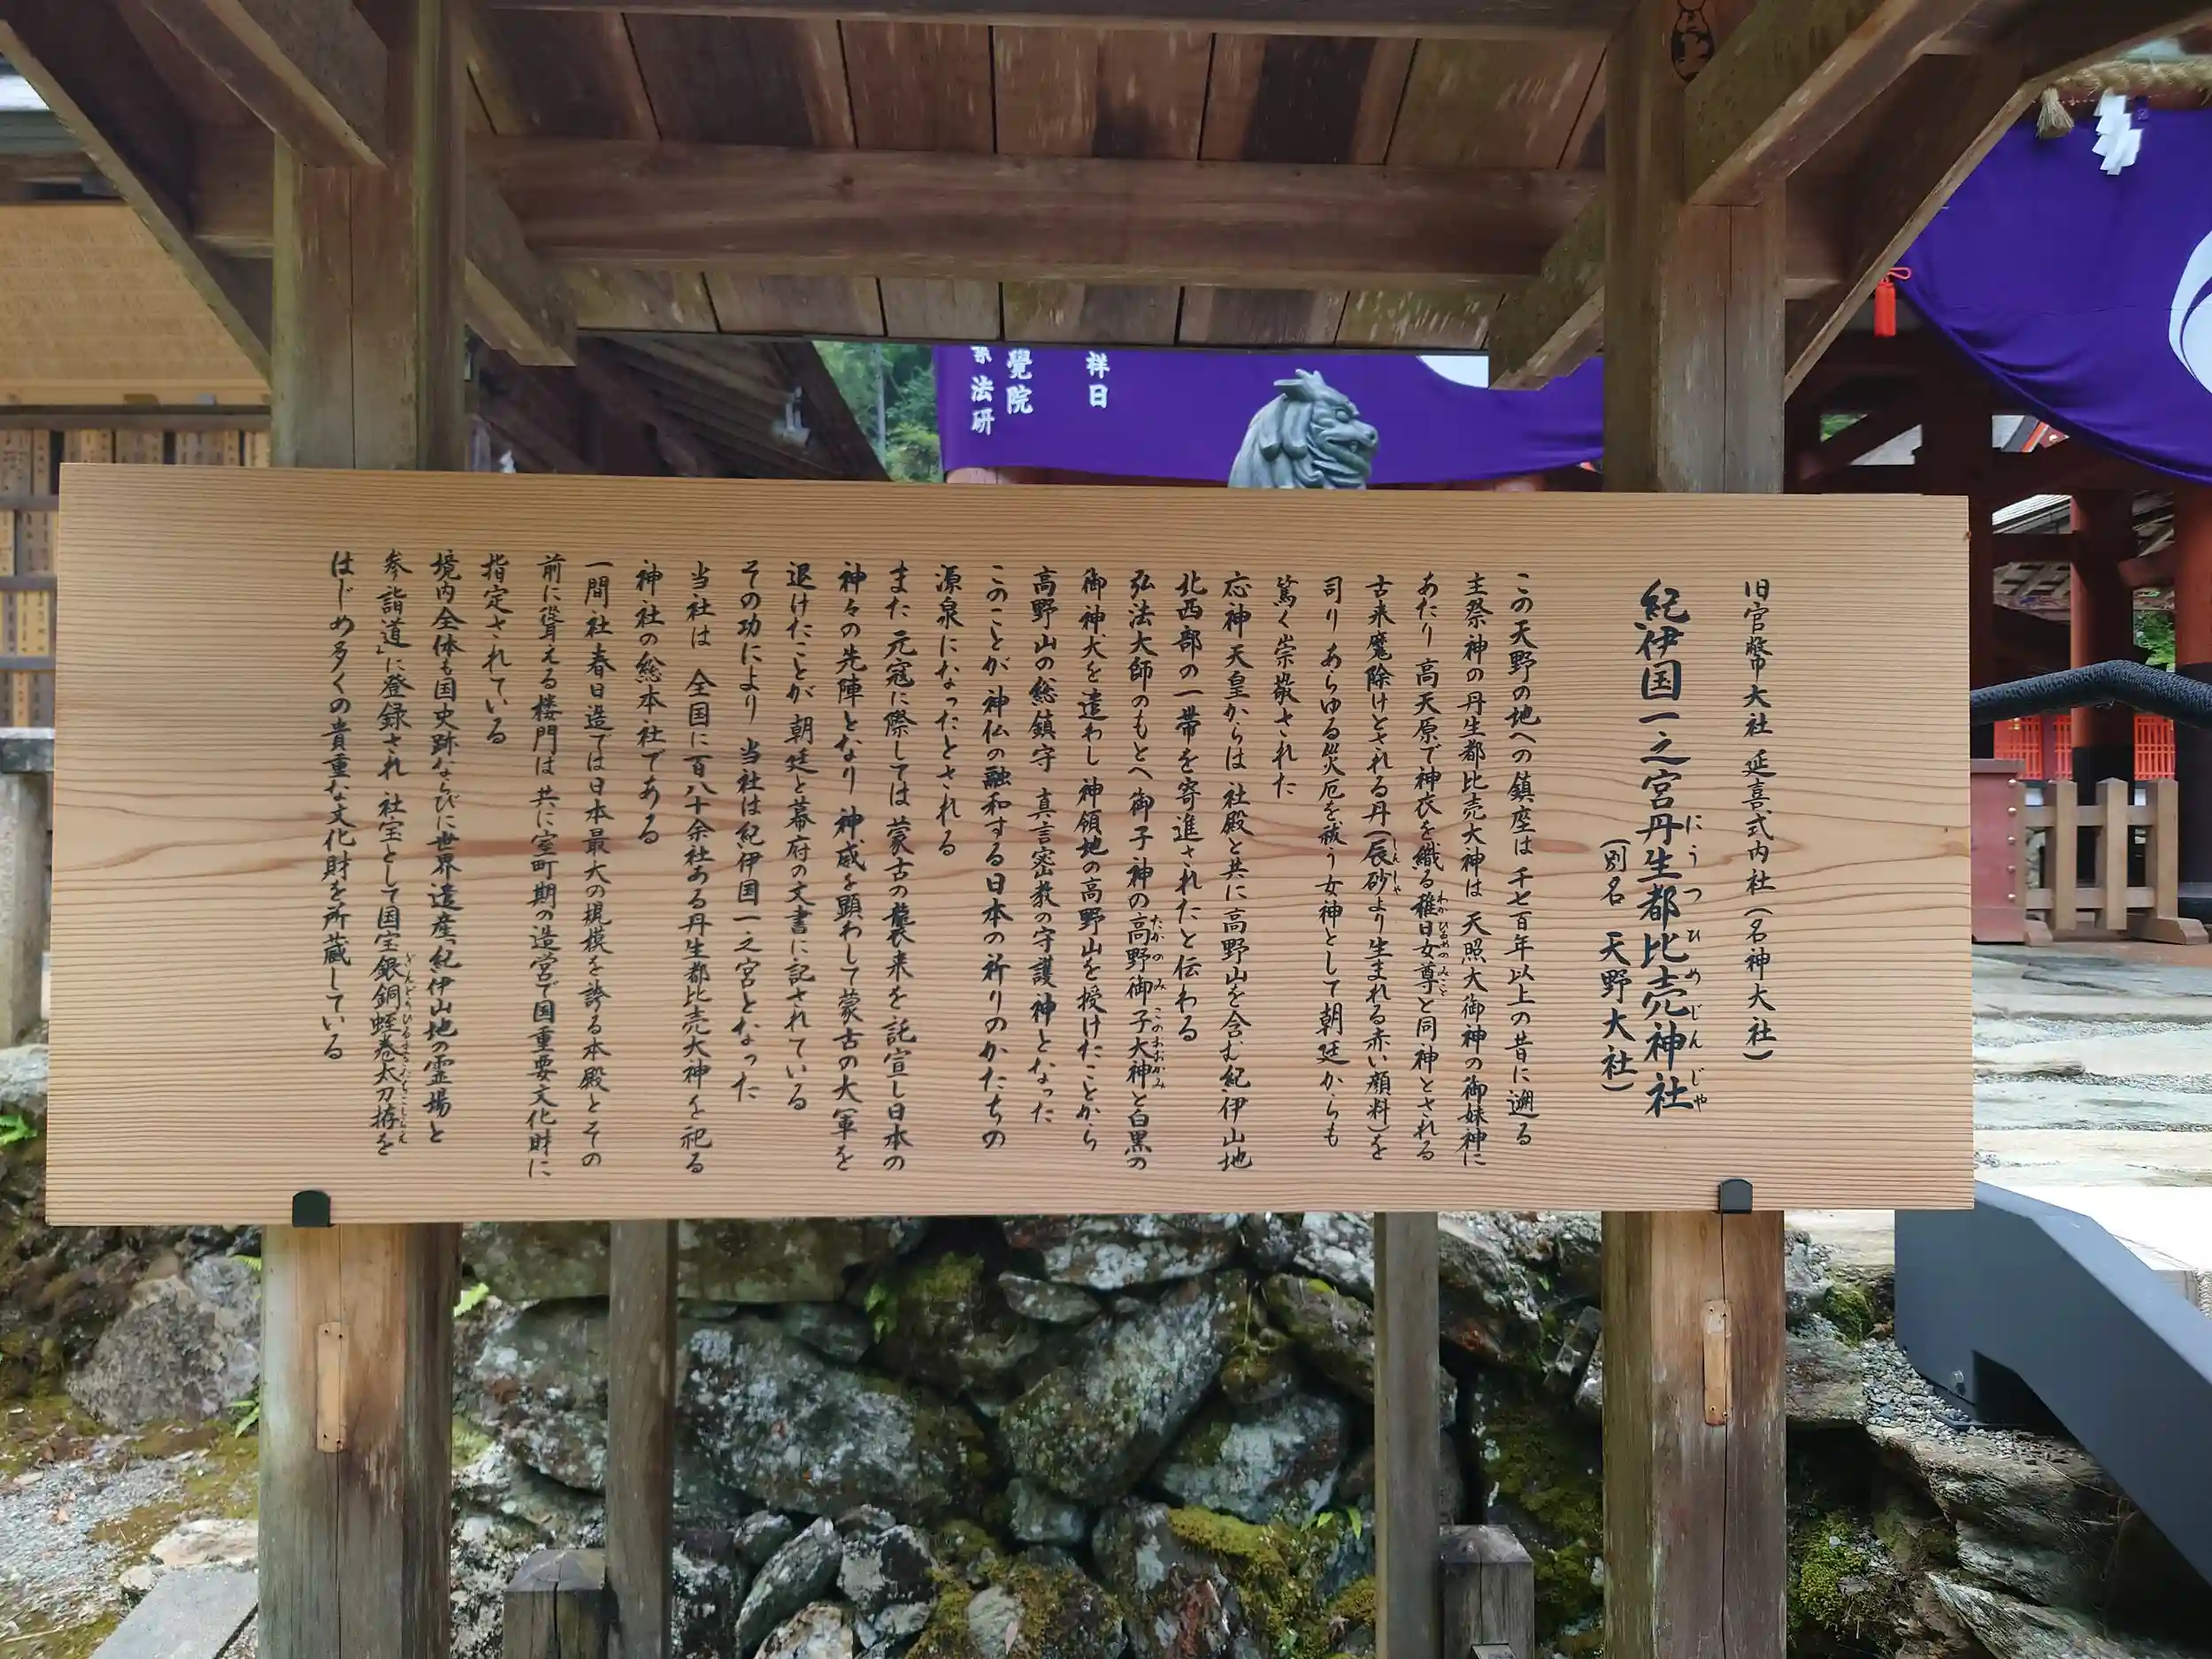 旧官幣大社 延喜式内社(名神大社)
紀伊国一之宮丹生都比売神社
にうつひめじんじゃ
(別名 天野大社)
この天野の地への鎮座は 千七百年以上の昔に遡る
主祭神の丹生都比売大神は 天照大御神の御妹神に
あたり 高天原で神衣を織る稚日女尊と同神とされる
わかひるめのみこと
古来魔除けとされる丹(辰砂より生まれる赤い顔料)を
しんしゃ
司り あらゆる災厄を祓う女神として朝廷からも
篤く崇敬された
応神天皇からは 社殿と共に高野山を含む紀伊山地
北西部の一帯を寄進されたと伝わる
弘法大師のもとへ御子神の高野御子大神と白黒の
たかのみこのおおかみ
御神犬を遣わし 神領地の高野山を授けたことから
高野山の総鎮守 真言密教の守護神となった
このことが 神仏の融和する日本の祈りのかたちの
源泉になったとされる
また 元寇に際しては 蒙古の襲来を託宣し日本の
神々の先陣となり 神威を顕わして蒙古の大軍を
退けたことが 朝廷と幕府の文書に記されている
その功により 当社は紀伊国一之宮となった
当社は 全国に百八十余社ある丹生都比売大神を祀る
神社の総本社である
一間社春日造では日本最大の規模を誇る本殿とその
前に聳える楼門は 共に室町期の造営で国重要文化財に
指定されている
境内全体も国史跡ならびに世界遺産「紀伊山地の霊場と
参詣道」に登録され 社宝として国宝銀銅蛭巻太刀拵を
ぎんどうひるまきたちこしらえ
はじめ多くの貴重な文化財を所蔵している
祥日
覺院
法研